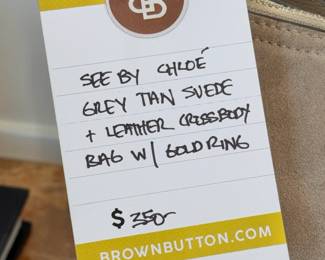 SEE BY CHLOÉ
GREY TAN SUEDE
+ LEATHER CROSSBODY
BAG W/ GOLD RING
$ 350-
BROWNBUTTON.COM